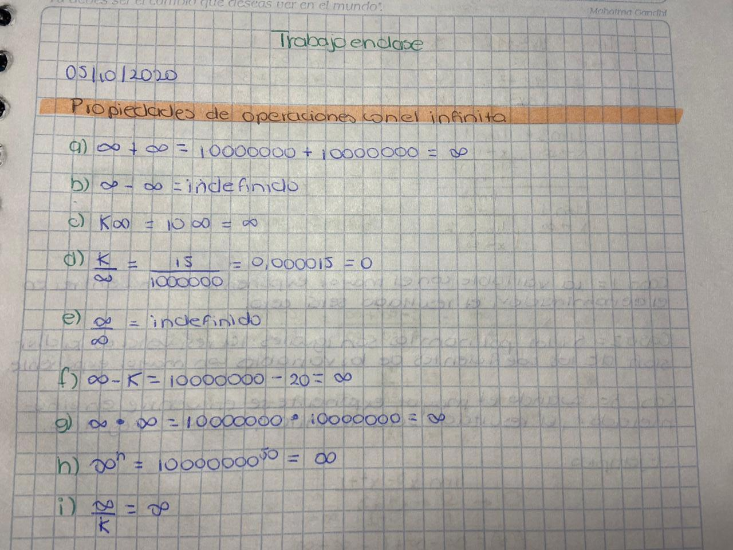 ser el cambio que deseas ver en el mundo".
Mahatma Gandhi
Trabajo en clase
05/10/2020
Propiedades de operaciones con el infinita
a) ∞ + ∞ = 10000000 + 10000000 = ∞
b) ∞ - ∞ = indefinido
c) K∞ = 10 ∞ = ∞
d) K/∞ = 15/1000000 = 0,000015 = 0
e) ∞/∞ = indefinido
f) ∞ - K = 10000000 - 20 = ∞
g) ∞ • ∞ = 10000000 • 10000000 = ∞
h) ∞ⁿ = 10000000⁵⁰ = ∞
i) ∞/K = ∞